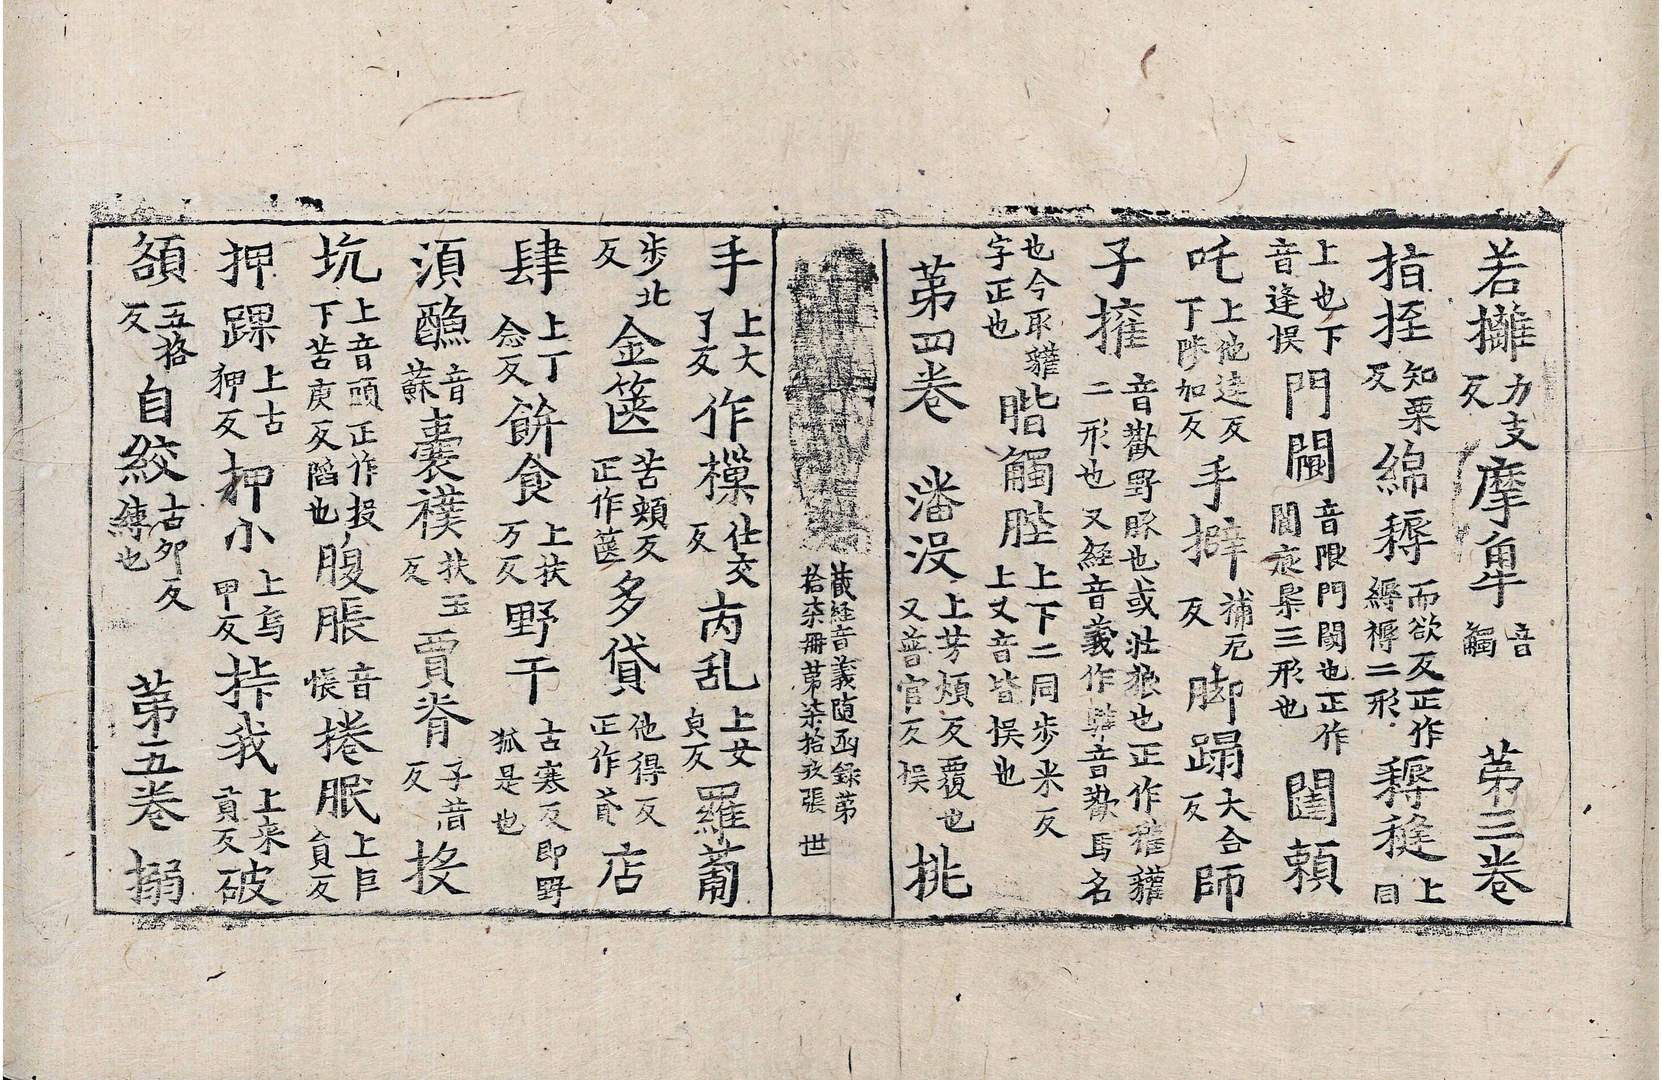 若攡力支反摩𧢻音觸 第三卷
指挃知栗反綿𦔳而欲反正作縟褥二形𦔳𦀓上同
上也下音逢悮門閫音限門閾也正作閫㡳𣙗三形也闇頼
吒上他達反下陟加反手擗補厄反脚蹋大合反師
子㩲音歡野豚也或壯狼也正作㹕貛二形也又経音義作驩音歡馬名
也今取貛字正也䏶觸䏶上下二同步米反上又音皆悮也
第四卷 潘没上芳煩反覆也又普官反悮挑
藏経音義随函録第拾柒冊第柒拾玖張 世
手上大了反作樔仕交反丙乱上女皃反羅蔔
步北反金篋苦頬反正作篋多貸他得反正作貣店
肆上丁念反餅食上扶万反野干古寒反即野狐是也
湏醮音蘇囊襆扶玉反賈脊子昔反投
坑上音頭正作投下苦庚反䧟也腹脹音悵捲眠上巨貟反
押踝上古狎反押小上烏甲反㧪我上来貢反破
頟五挌反自絞古夘反縛也 第五卷 搦